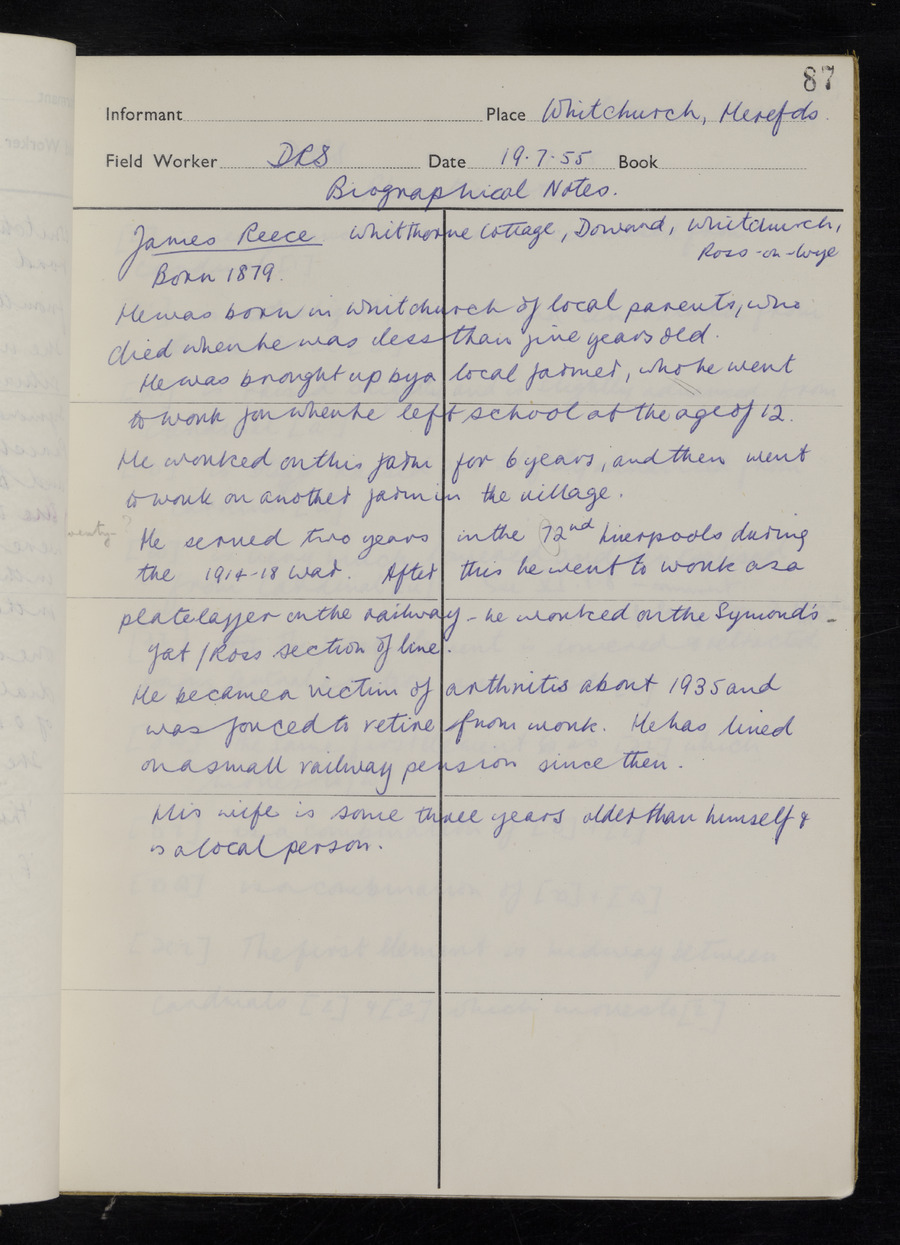 87
Informant Place Whitchurch, Herefds.
Field Worker DRS Date 19.7.55 Book
Biographical Notes.
James Reece. Whitthorne Cottage, Doward, Whitchurch,
Ross-on-Wye
Born 1879.
He was born in Whitchurch of local parents, who
died when he was less than five years old.
He was brought up by a local farmer, who he went
to work for when he left school at the age of 12.
He worked on this farm for 6 years, and then went
to work on another farm in the village.
He served two years in the 72nd Liverpools during
the 1914-18 war. After this he went to work as a
platelayer on the railway - he worked on the Symond's-
Yat / Ross section of line.
He became a victim of arthritis about 1935 and
was forced to retire from work. He has lived
on a small railway pension since then.
His wife is some three years older than himself &
is a local person.